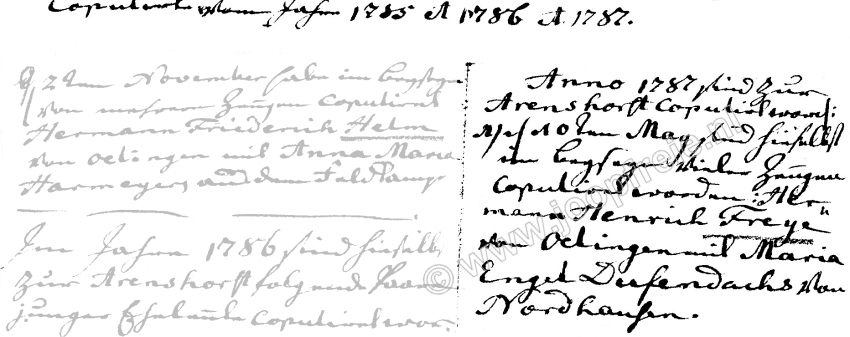 Copulierte vom Jahre 1785 et 1786 et 1787.
d 2ten November habe im beyseyn
von mehrern Zeugen copuliret
Hermann Friederich Helm
von Oelingen mit Anna Maria
Harmeyers aus dem Faldkamp
Im Jahre 1786 sind hieselbst
zur Arenshorst folgende Paar
junger Eheleute copuliret wor:
Anno 1787 sind zur
Arenshorst copuliret word:
1) d 10ten May sind hieselbst
im beyseyn vieler Zeugen
copuliret worden: Her=
mann Henrich Freye
von Oelingen mit Maria
Engel Dufendachs von
Nordhausen.
© www.joopfreij.nl